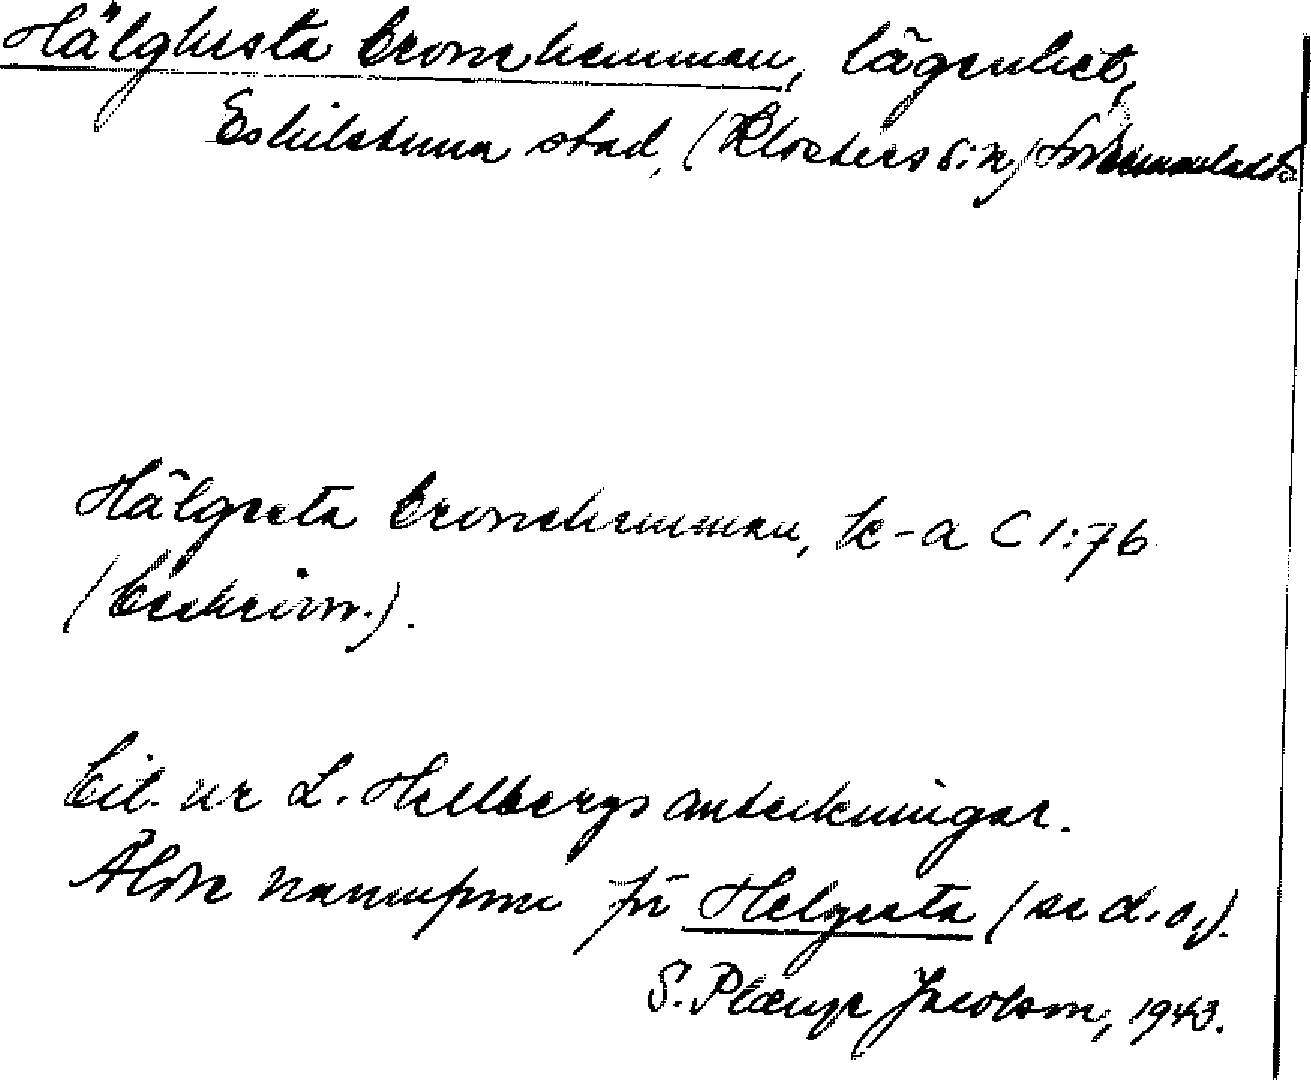 Hälghesta cronehemman, lägenhet,
Eskilstuna stad, (Klosters s:n) Södermanlands
Hälgesta cronehemman, k-a C 1:76
(beskrivn.).
Cit. ur L. Hellbergs anteckningar.
Äldre namnform för Helgesta (se d. o.).
S. Plænge Jacobson, 1943.